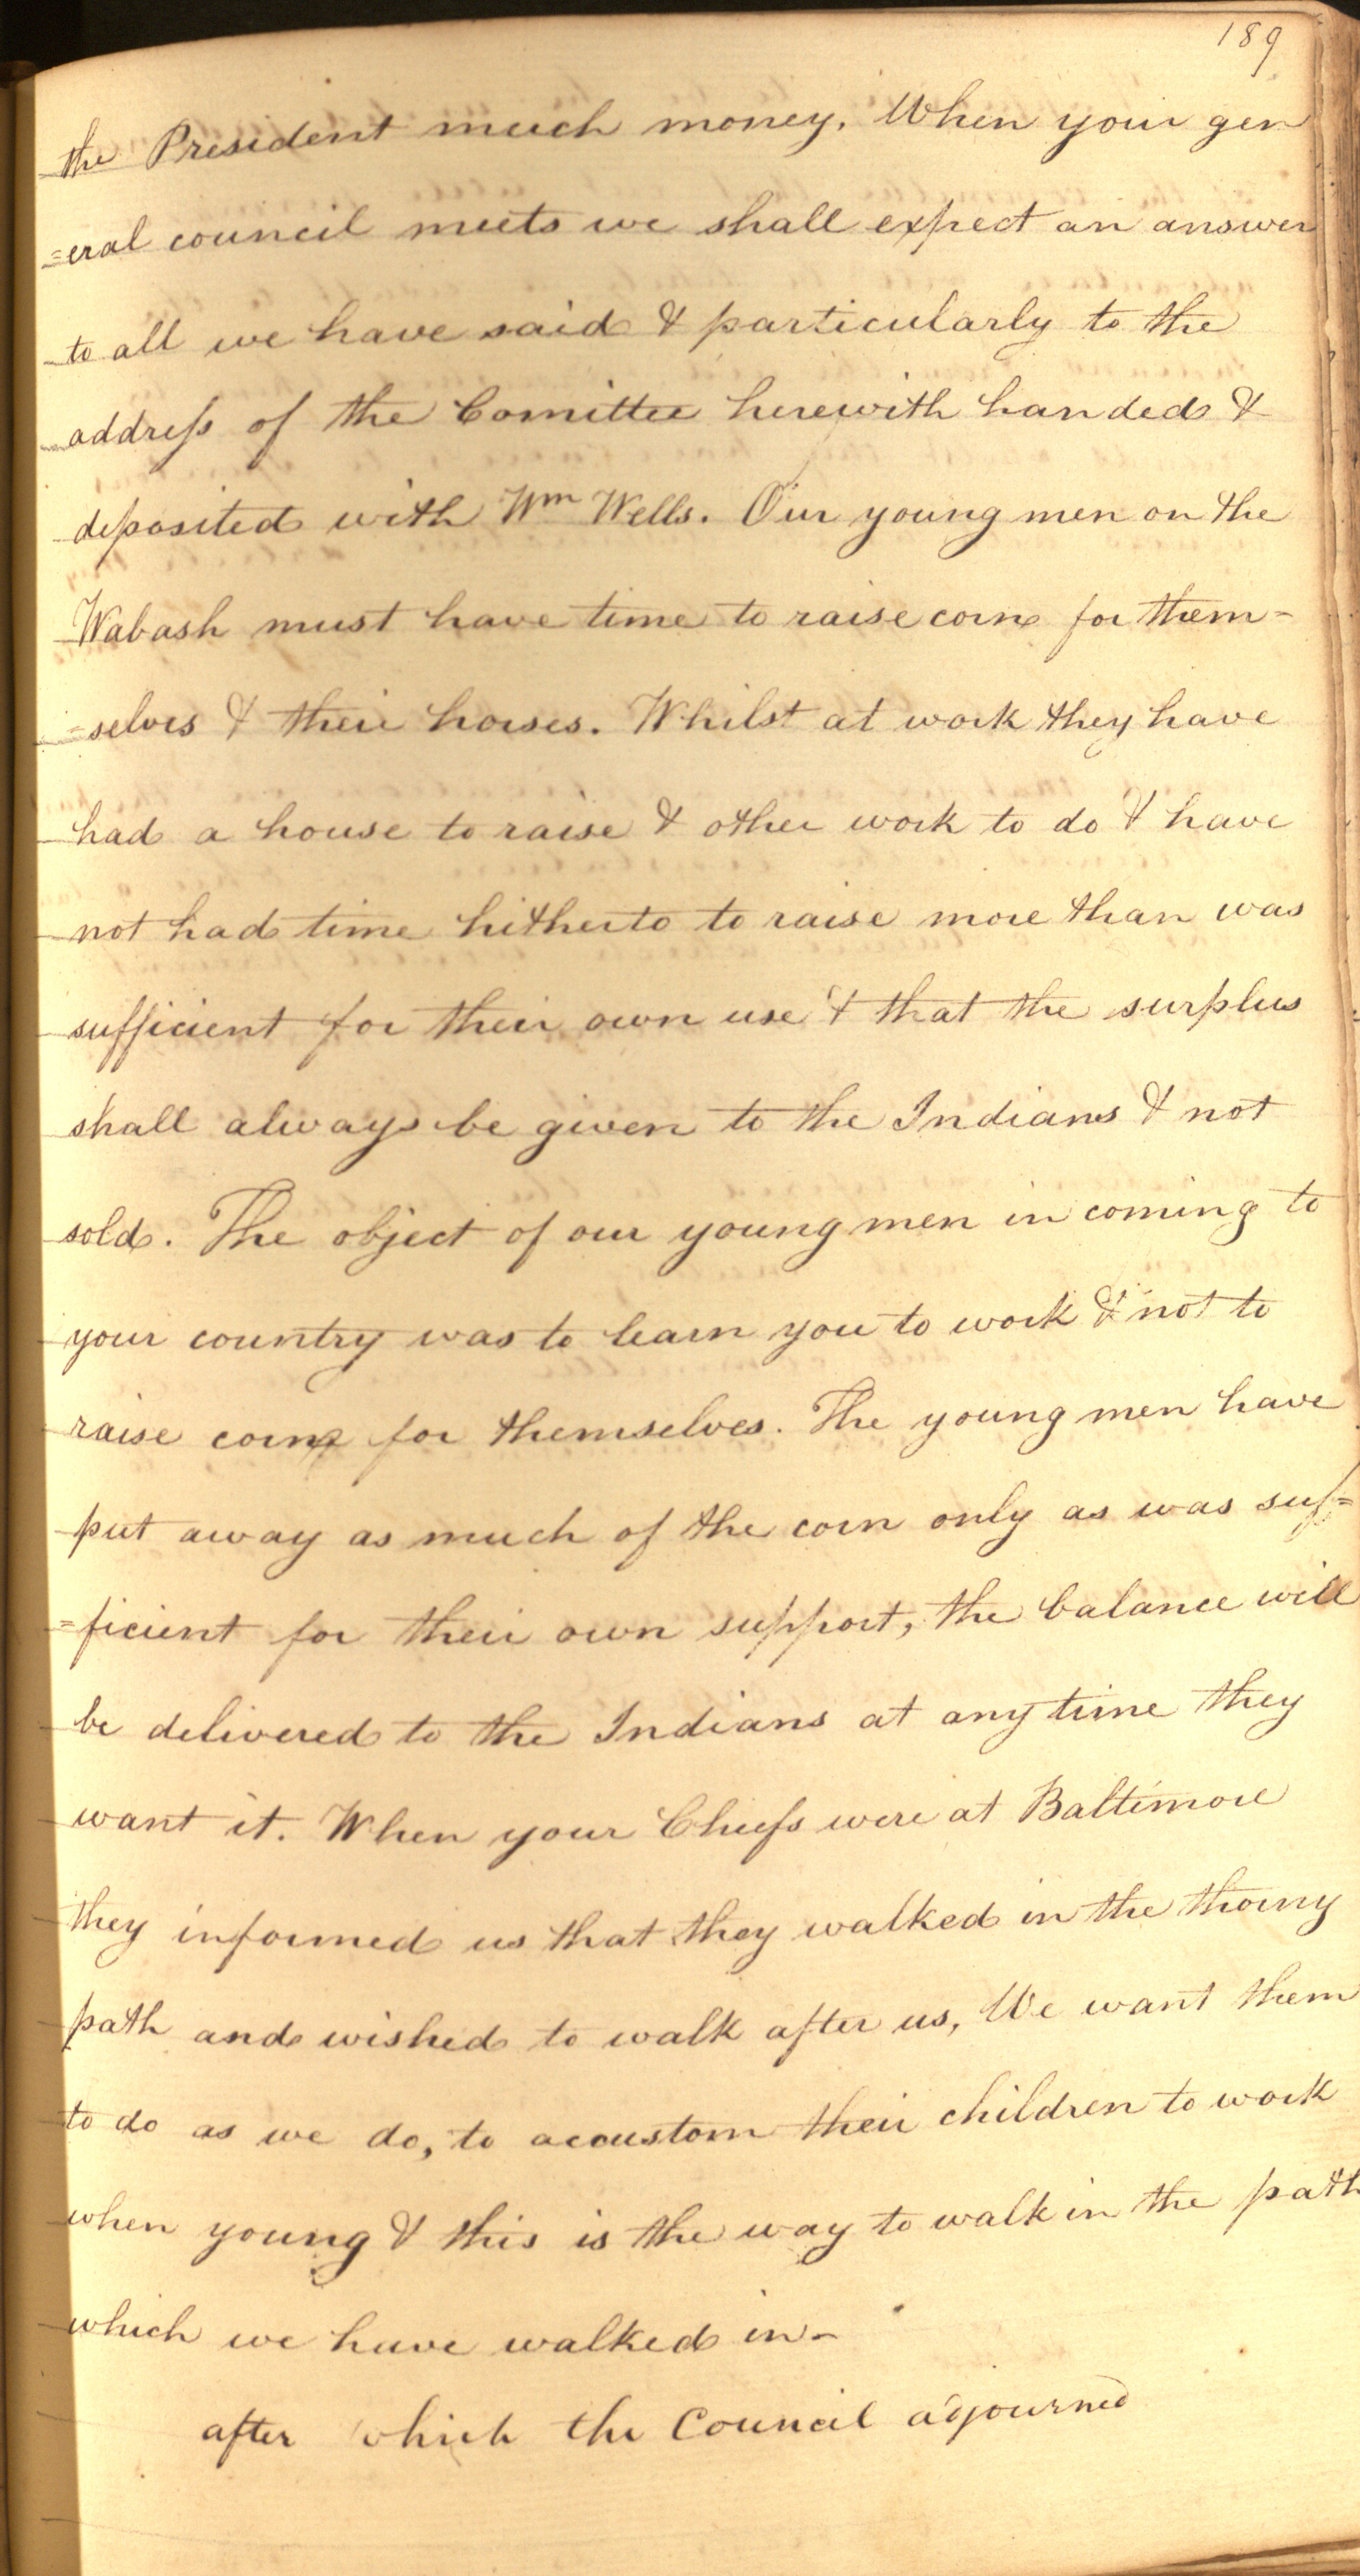 189
the President much money. When your gen
=eral council meets we shall expect an answer
to all we have said & particularly to the
address of the Comittee herewith handed &
deposited with Wm Wells. Our young men on the
Wabash must have time to raise corn for them=
=selves & their horses. Whilst at work they have
had a house to raise & other work to do & have
not had time hitherto to raise more than was
sufficient for their own use & that the surplus
shall always be given to the Indians & not
sold. The object of our young men in coming to
your country was to learn you to work & not to
raise corn for themselves. The young men have
put away as much of the corn only as was suf=
=ficient for their own support, the balance will
be delivered to the Indians at any time they
want it. When your Chiefs were at Baltimore
they informed us that they walked in the thorny
path and wished to walk after us, We want them
to do as we do, to accustom their children to work
when young & this is the way to walk in the path
which we have walked in-
after which the Council adjourned